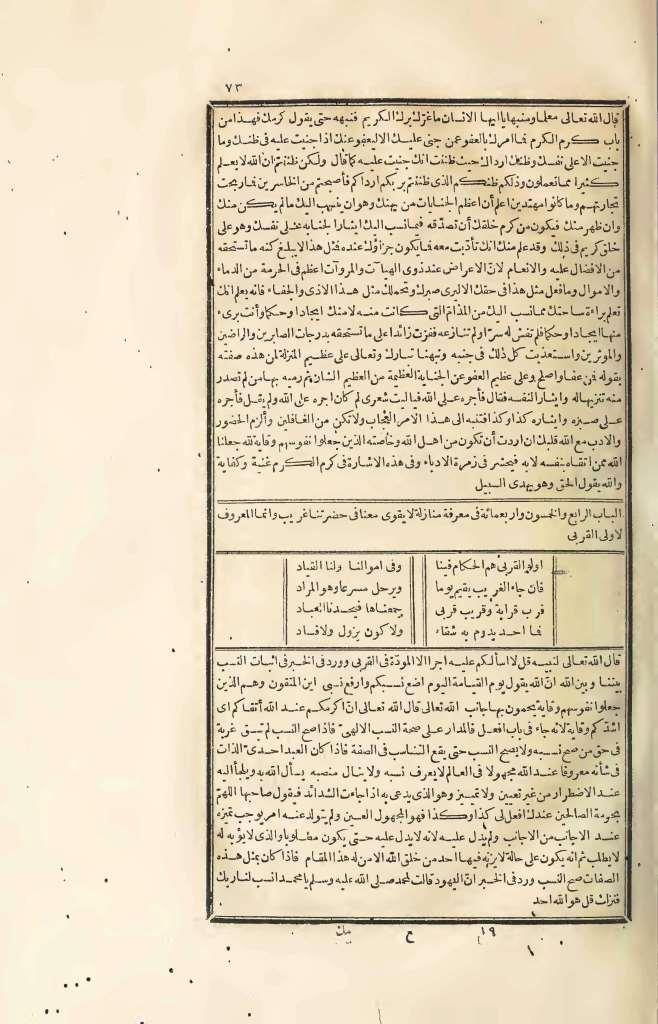 ٧٣
قال الله تعالى معلما ومنبها يا أيها الانسان ما غرّك بربك الكريم فنبهه حتى يقول كرمك فهذا من
باب كرم الكرم فما امرك بالعفو عمن جنى عليك الا ليعفو عنك اذا جنيت عليه في ظنك وما
جنيت الا على نفسك وظنك ارداك حيث ظننت انك جنيت عليه كما قال ولكن ظننتم ان الله لا يعلم
كثيرا مما تعملون وذلكم ظنكم الذى ظننتم بربكم ارداكم فأصبحتم من الخاسرين فما ربحت
تجارتهم وما كانوا مهتدين اعلم أن أعظم الجنايات من يبهتك وهو ان ينسب اليك ما لم يكن منك
وان ظهر منك فيكون من كرم خلقك أن تصدّقه فيما نسب اليك ايثارا لجنابه على نفسك وهو على
خلق كريم في ذلك وقد علم منك انك تأدّبت معه فما يكون جزاؤك عنده فمثل هذا لا يبلغ كنه ما تستحقه
من الافضال عليه والانعام لانّ الاعراض عند ذوى الهيآت والمروآت اعظم في الحرمة من الدماء
والاموال وما فعل مثل هذا في حقك الا ليرى صبرك وتحملك مثل هذا الاذى والجفاء فانه يعلم انك
تعلم براءة ساحتك مما نسب اليك من المذامّ التى كانت منه لا منك ايجادا وحكما وأنت برىء
منها ايجادا وحكما فلم تفش له سرّا ولم تنازعه فغزت زائدا على ما تستحقه بدرجات الصابرين والراضين
والموثرين واستعذبت كل ذلك في جنبه ونبهنا تبارك وتعالى على عظيم المنزلة لمن هذه صفته
بقوله فمن عفا واصلح وعلى عظيم العفو عن الجناية العظيمة من العظيم الشان بتم رميه بها من لم تصدر
منه تنزيها له وايثارا لنفسه فقال فأجره على الله فيا ليت شعرى لم كان اجره على الله ولم يقل فأجره
على صبره وايثاره كذا وكذا فتنبه الى هذا الامر العجاب ولا تكن من الغافلين وألزم الحضور
والادب مع الله قلبك ان اردت أن تكون من اهل الله وخاصته الذين جعلوا نفوسهم وقاية لله جعلنا
الله ممن اتقاه بنفسه لا به فيحشر في زمرة الادباء وفى هذه الاشارة في كرم الكرم غنية وكفاية
والله يقول الحق وهو يهدى السبيل
الباب الرابع والخمسون واربعمائة في معرفة منازلة لا يقوى معنا في حضرتنا غريب وانما المعروف
لاولى القربى
اولو القربى هم الحكام فينا وفى اموالنا ولنا القياد
فان جاء الغريب يقيم يوما ويرحل مسرعا وهو المراد
قرب قرابة وقريب قربى جمعناها فيحمدنا العباد
فما احد يدوم به شقاء ولا كون يزول ولا فساد
قال الله تعالى لنبيه قل لا اسألكم عليه اجرا الا المودّة في القربى وورد في الخبر في اثبات النسب
بيننا وبين الله انّ الله يقول يوم القيامة اليوم اضع نسبكم وارفع نسبى اين المتقون وهم الذين
جعلوا نفوسهم وقاية يحمون بها جناب الله تعالى قال الله تعالى انّ اكرمكم عند الله أتقاكم اى
اشدّكم وقاية لانه جاء في باب افعل فالمدار على صحة النسب الالهىّ فاذا صح النسب لم تبق غربة
في حق من صح نسبه ولا يصح النسب حتى يقع التناسب في الصفة فاذا كان العبد احدىّ الذات
في شأنه معروفا عند الله مجهولا في العالم لا يعرف نسبه ولا ينال منصبه يسأل الله به ويلجأ اليه
عند الاضطرار من غير تعيين ولا تمييز وهو الذى يدعى به اذا جاءت الشدائد فيقول صاحبها اللهمّ
بحرمة الصالحين عندك افعل لى كذا وكذا فهو المجهول العين ولم يتولد عنه امر يوجب تميزه
عند الاجانب من الاجانب ولم يدل عليه لانه لا يدل عليه حتى يكون مطلوبا والذى لا يؤبه له
لا يطلب ثم انه يكون على حالة لا يزنه فيها احد من خلق الله الا من له هذا المقام فاذا كان بمثل هذه
الصفات صح النسب ورد في الخبر انّ اليهود قالت لمحمد صلى الله عليه وسلم يا محمد انسب لنا ربك
فنزلت قل هو الله احد
١٩ ح مك